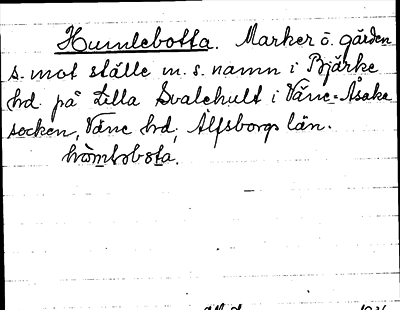 Humlebotta. Marker ö. gården
s. mot ställe m. s. namn i Bjärke
hd. på Lilla Svalehult i Väne-Åsaka
socken, Väne hd, Älfsborgs län.